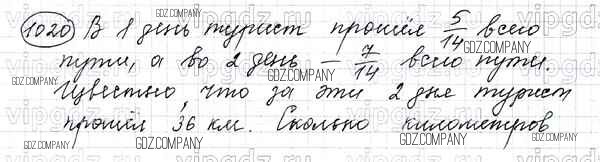 1020 В 1 день турист прошёл 5/14 всего
пути, а во 2 день – 7/14 всего пути.
Известно, что за эти 2 дня турист
прошёл 36 км. Сколько километров
GDZ.COMPANY
GDZ.COMPANY
GDZ.COMPANY
GDZ.COMPANY
GDZ.COMPANY
GDZ.COMPANY
GDZ.COMPANY
vipgdz.ru